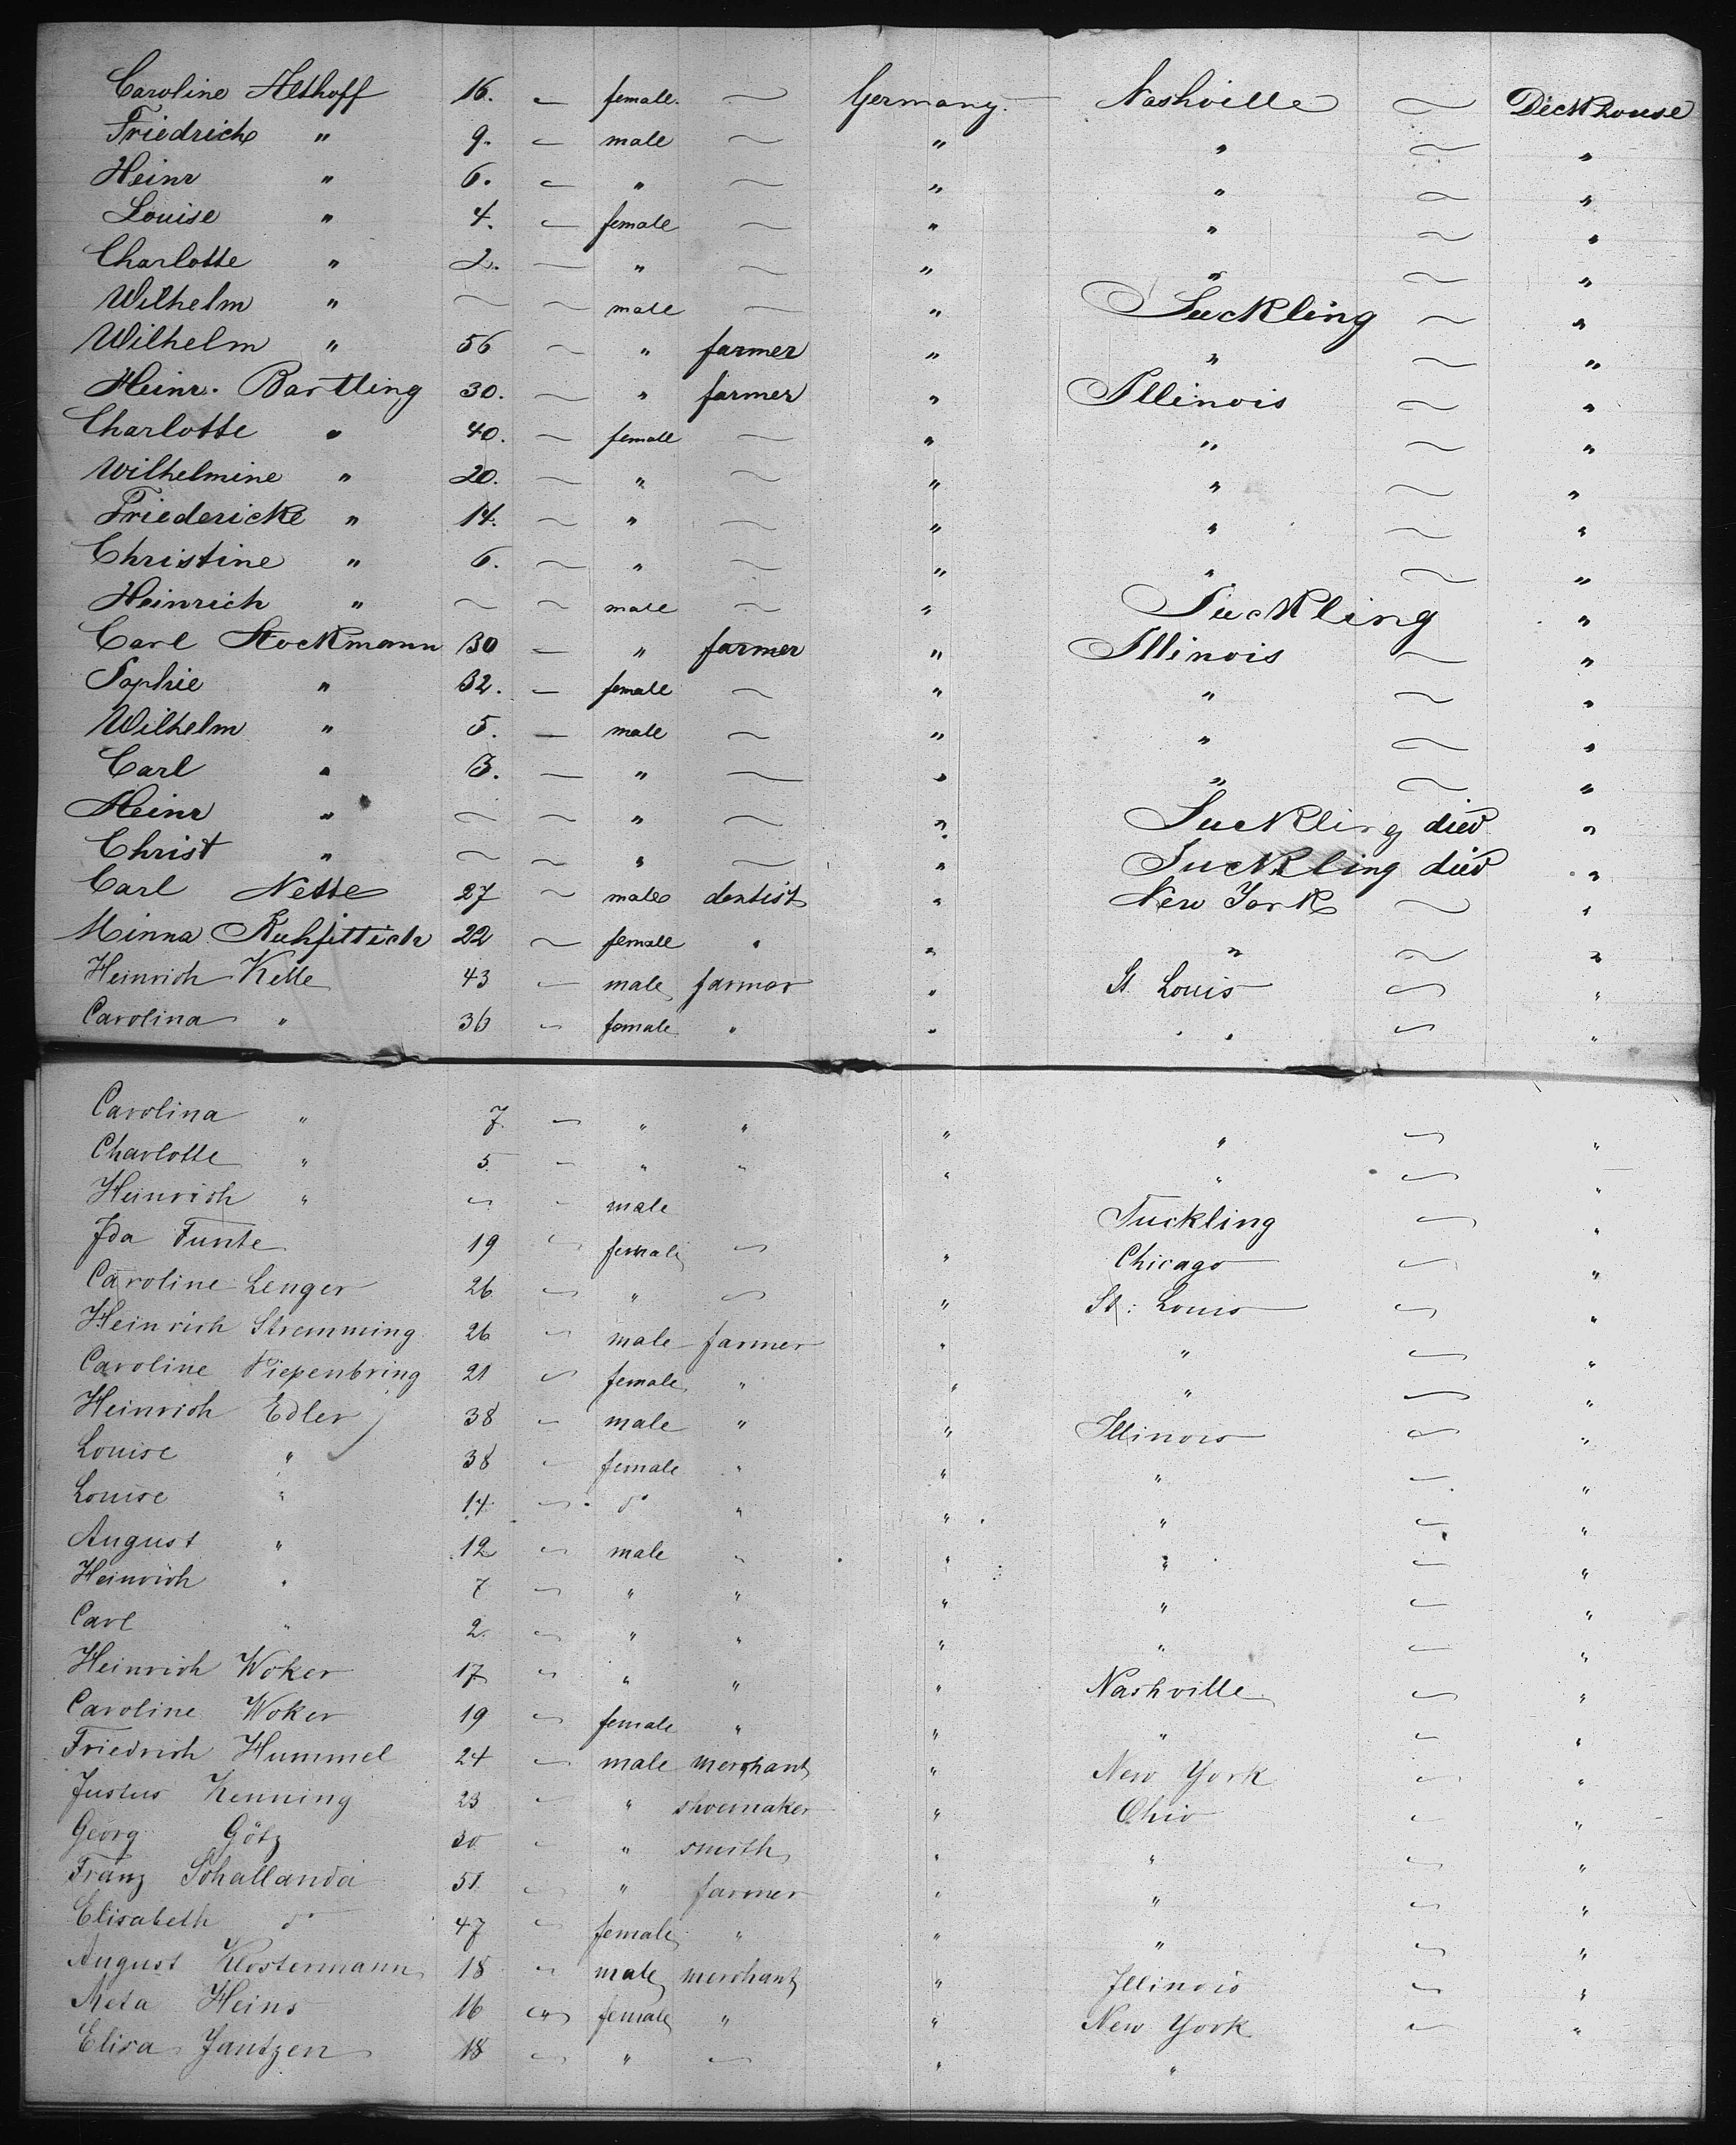 Caroline Althoff 16. – female. ~ Germany. Nashville ~ Deckhouse
Friedrich " 9. – male ~ " " ~ "
Heinr " 6. – " ~ " " ~ "
Louise " 4. – female ~ " " ~ "
Charlotte " 2. – " ~ " " ~ "
Wilhelm " ~ ~ male ~ " Suckling ~ "
Wilhelm " 56 ~ " farmer " " ~ "
Heinr. Bartling 30. ~ " farmer " Illinois ~ "
Charlotte " 40. ~ female ~ " " ~ "
Wilhelmine " 20. ~ " ~ " " ~ "
Friedericke " 14. ~ " ~ " " ~ "
Christine " 6. ~ " ~ " " ~ "
Heinrich " ~ ~ male ~ " Suckling "
Carl Stockmann 30 – " farmer " Illinois ~ "
Sophie " 32. – female ~ " " ~ "
Wilhelm " 5. – male ~ " " ~ "
Carl " 3. – " ~ " " ~ "
Heinr " ~ ~ " ~ " Suckling died "
Christ " ~ ~ " ~ " Suckling died "
Carl Nette 27 ~ male dentist " New York ~ "
Minna Kuhfittich 22 ~ female " " " ~ "
Heinrich Kelle 43 ~ male farmer " St Louis ~ "
Carolina " 36 ~ female " " " " ~ "
Carolina " 7. ~ " " " " ~ "
Charlotte " 5. ~ " " " " ~ "
Heinrich " ~ ~ male Suckling ~ "
Ida Funte 19 ~ female ~ " Chicago ~ "
Caroline Lenger 26 ~ " ~ " St: Louis ~ "
Heinrich Stremming 26 ~ male farmer " " ~ "
Caroline Piepenbring 21 ~ female " " " ~ "
Heinrich Edler 38 ~ male " " Illinois ~ "
Louise " 38 ~ female " " " ~ "
Louise " 14 ~ do " " " ~ "
August " 12 ~ male " " " ~ "
Heinrich " 7 ~ " " " " ~ "
Carl " 2. ~ " " " " ~ "
Heinrich Woker 17 ~ " " " Nashville ~ "
Caroline Woker 19 ~ female " " " ~ "
Friedrich Hummel 24 ~ male merchant " New York ~ "
Justus Henning 23 ~ " shoemaker " Ohio ~ "
Georg Götz 30 ~ " smith " " ~ "
Franz Schallanda 51 ~ " farmer " " ~ "
Elisabeth do 47 ~ female " " " ~ "
August Klostermann 18 ~ male merchant " Illinois ~ "
Meta Heins 16 ~ female " " New York ~ "
Elisa Jantzen 18 ~ " ~ " "